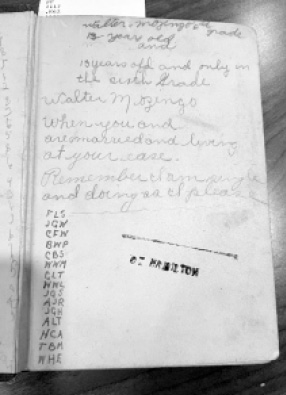 Walter Mozingo
13 year old grade
and
13 years old and only in
the sixth Grade
Walter Mozingo
When you and
are married and living
at your ease.
Remember I am single
and doing as I please
FLS
JGW
CFW
BWP
CBS
WWM
CLT
WWL
JGS
AJR
JGH
ALT
HCA
TBM
WHE
OF HAMILTON